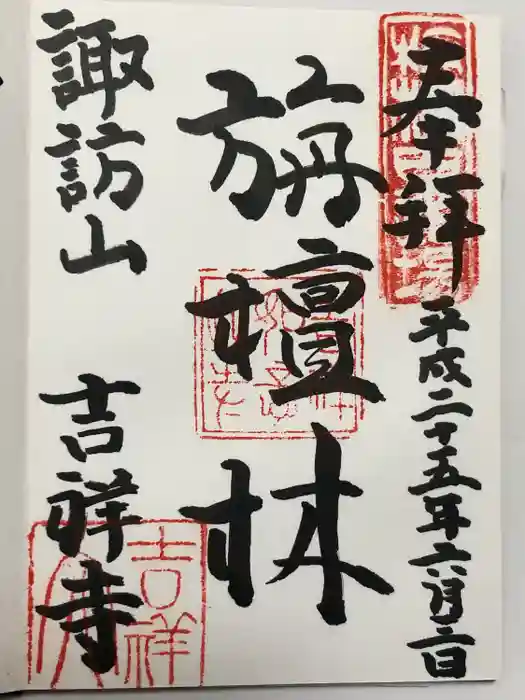 奉拝
平成二十五年六月二日
旃檀林
諏訪山
吉祥寺
吉祥